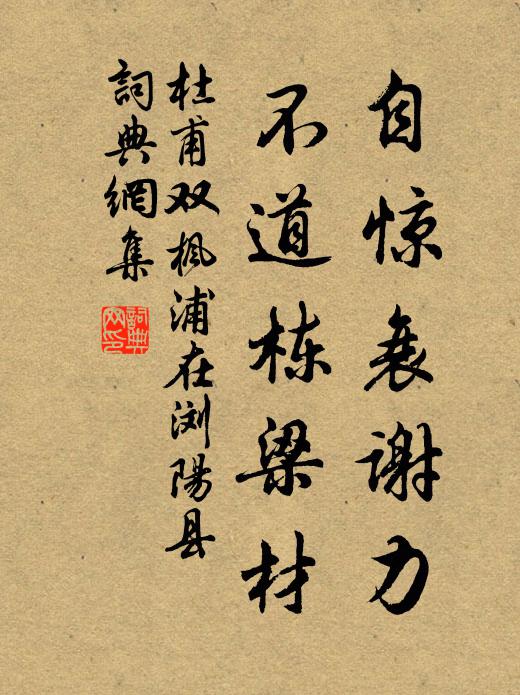 自惊衰谢力
不道栋梁材
杜甫双楓浦在浏陽县
詞典網集
詞典网印